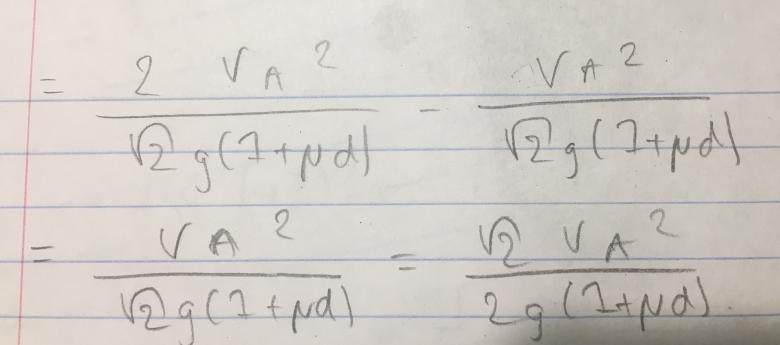 = 2 V_A² / √2 g(1+μd) − V_A² / √2 g(1+μd)
= V_A² / √2 g(1+μd) = √2 V_A² / 2g(1+μd).